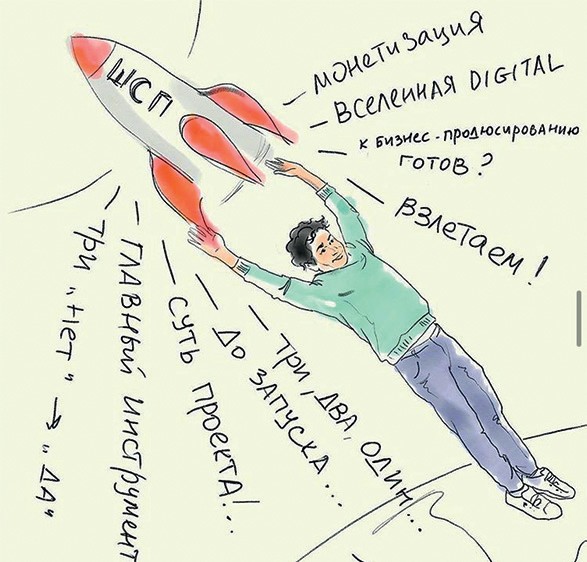 ШСП
– МОНЕТИЗАЦИЯ
– ВСЕЛЕННАЯ DIGITAL
– К БИЗНЕС-ПРОДЮСИРОВАНИЮ
ГОТОВ?
– ВЗЛЕТАЕМ!
– ТРИ, ДВА, ОДИН...
– ДО ЗАПУСКА...
– СУТЬ ПРОЕКТА!..
– ГЛАВНЫЙ ИНСТРУМЕНТ
– ТРИ „НЕТ" → „ДА"